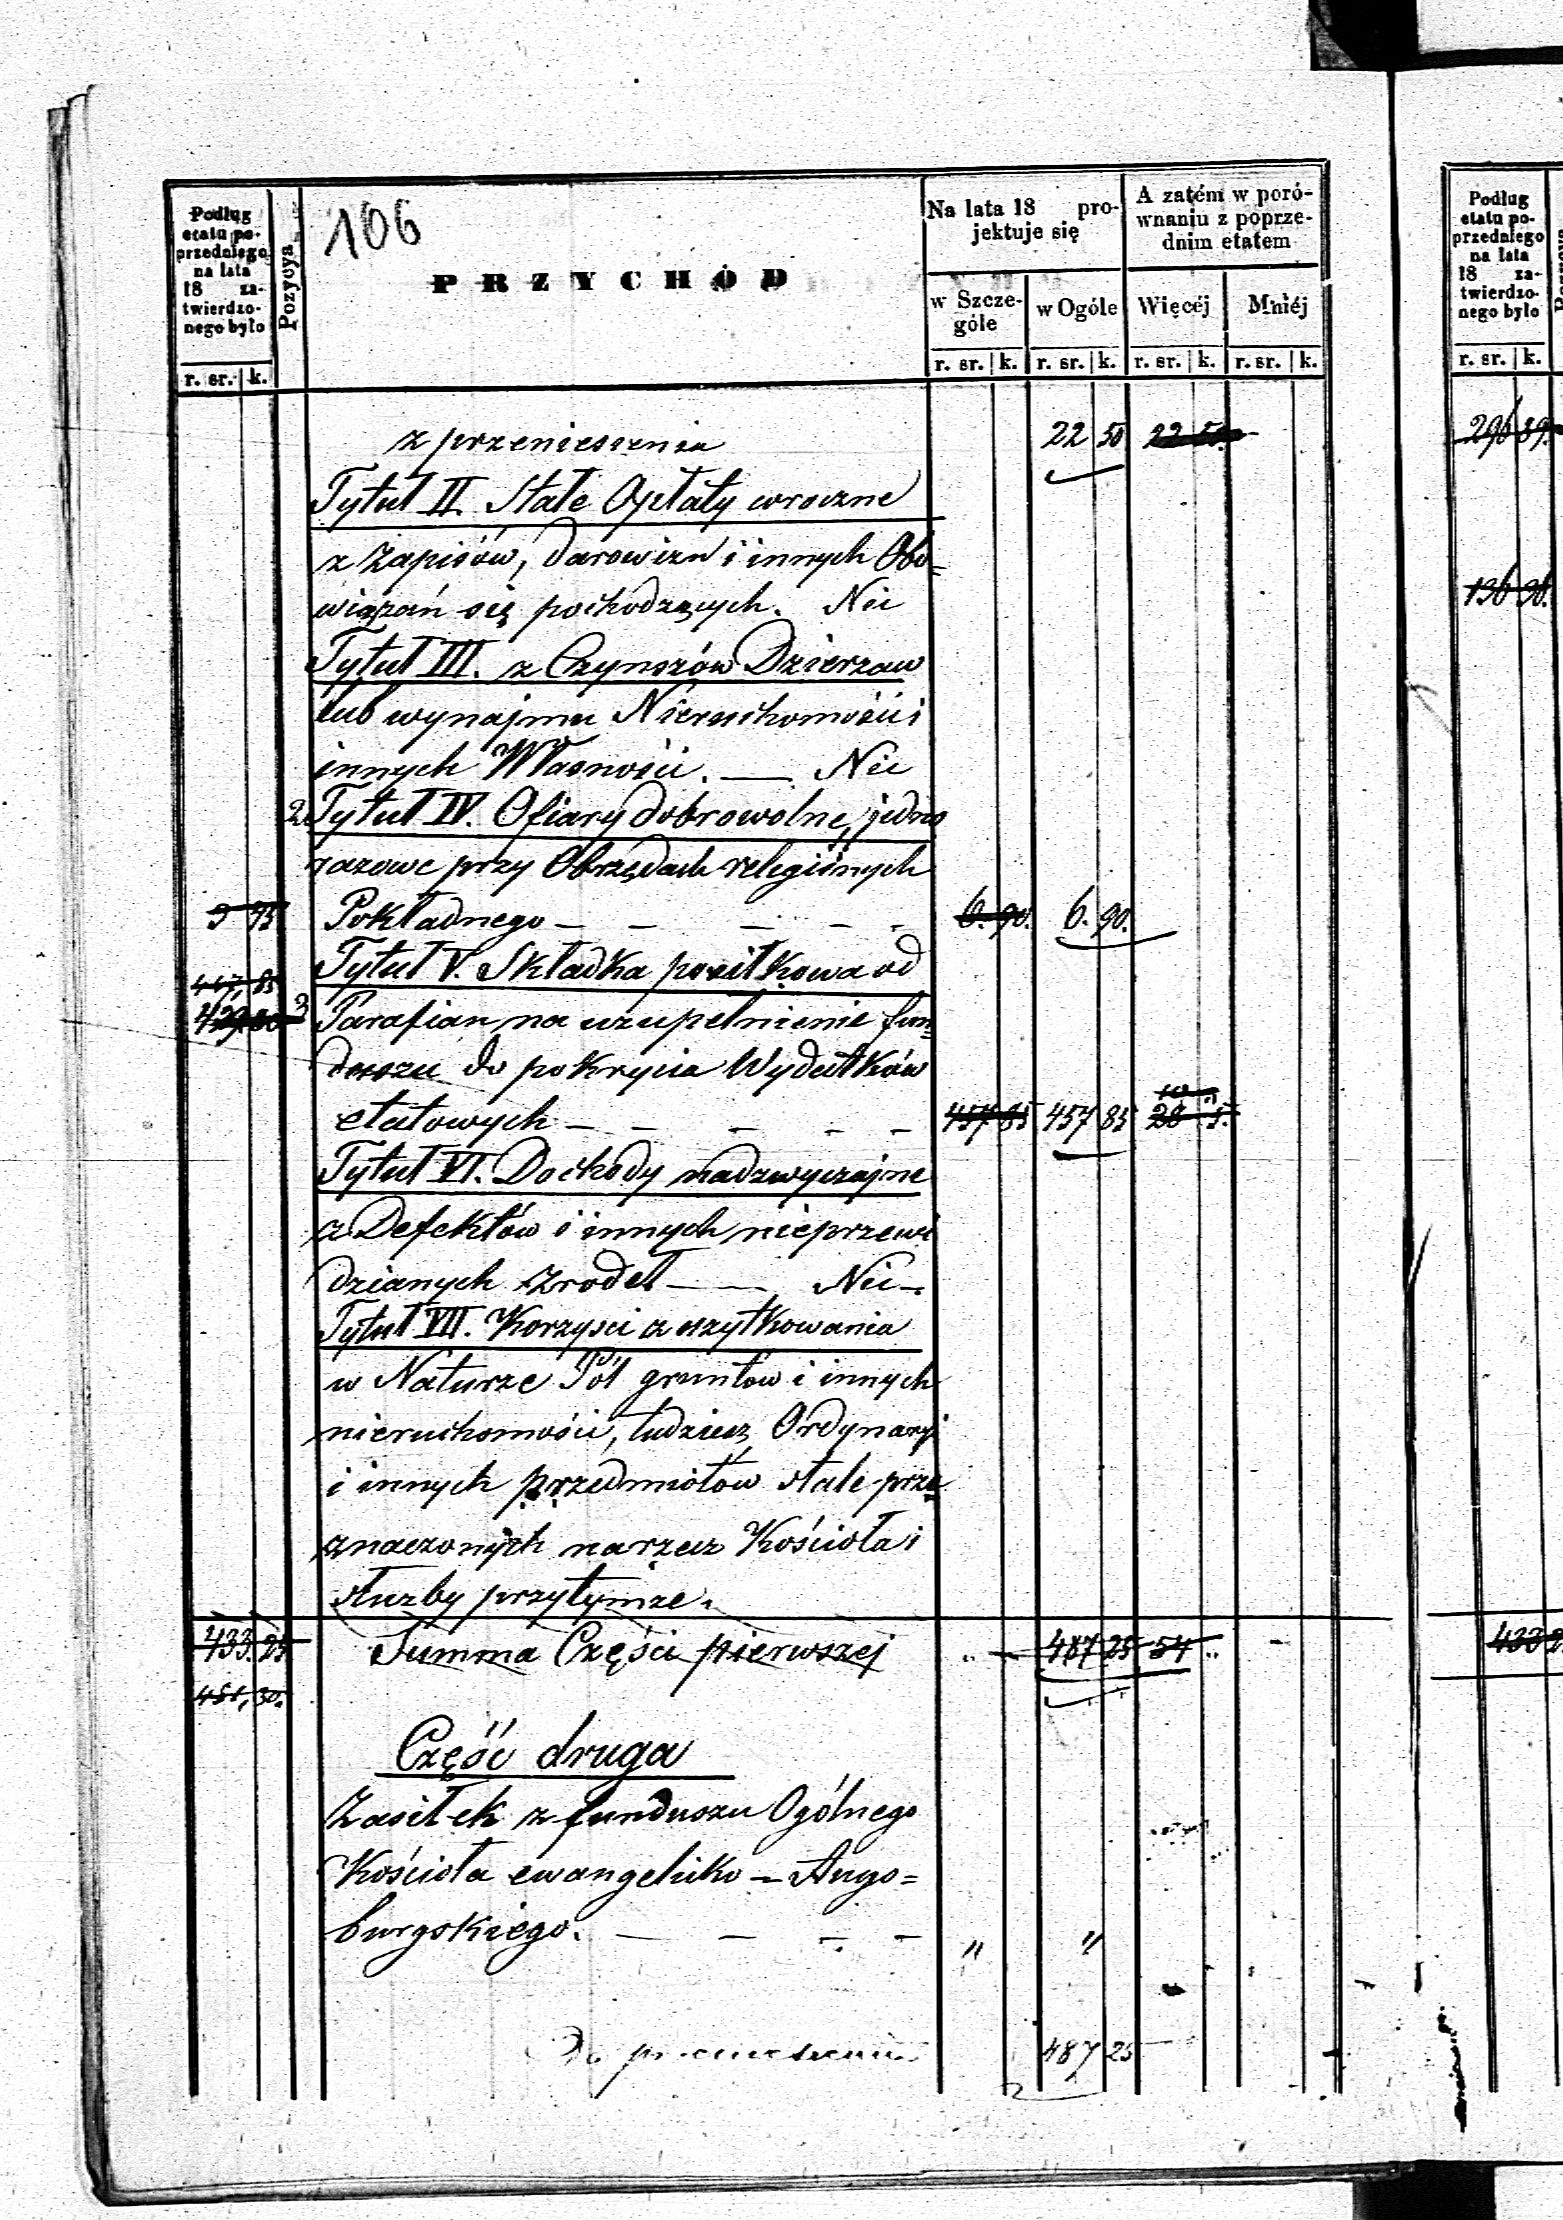 106
Podług etatu po-
przedniego
na lata
18 za-
twierdzo-
nego było
Pozycya
PRZYCHÓD
Na lata 18 pro-
jektuje się
A zatém w poró-
wnaniu z poprze-
dnim etatem
w Szcze-
góle
w Ogóle
Więcéj
Mniéj
r. sr. k.
r. sr. k. r. sr. k. r. sr. k. r. sr. k.
z przeniesienia 22 50 22 50
Tytuł II. Stałe Opłaty wroczne
z Zapisów, darowizn i innych Obo=
wiązań się pochodzących. Nic
Tytuł III. z Czynszów Dzierzaw
lub wynajmu Nieruchomości i
innych Własności. — Nic
2. Tytuł IV. Ofiary dobrowolne, jedno
razowe przy Obrzędach religijnych
Pokładnego — — — — — 6. 90. 6. 90.
Tytuł V. Składka posiłkowa od
3 Parafian na uzupełnienie fun=
duszu do pokrycia Wydatków
etatowych — — — — — 457 85 457 85
Tytuł VI. Dochody nadzwyczajne
z Defektów i innych nieprzewi
dzianych zrodeł — — Nic
Tytuł VII. Korzyści z uzytkowania
w Naturze Pól gruntów i innych
nieruchomości, tudzież Ordynaryi
i innych przedmiotów stale prze
znaczonych na rzecz Kościoła i
służby przytymże.
433. 25 Summa Części pierwszej 487 25 54
451, 30.
Część druga
Zasiłek z funduszu Ogólnego
Kościoła ewangelicko — Augs=
burgskiego. — — — — " "
Do przeniesienia 487 25
Podług
etatu po-
przedniego
na lata
18 za-
twierdzo-
nego było
r. sr. k.
296 89.
196 96.
433 2